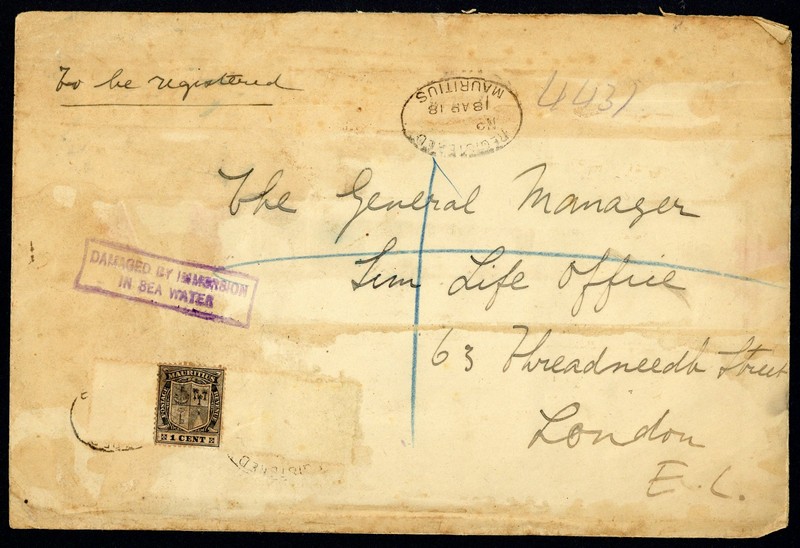 To be registered
4431
REGISTERED
No
18 AP 18
MAURITIUS
The General Manager
Sun Life Office
63 Threadneedle Street
London
E. C.
DAMAGED BY IMMERSION
IN SEA WATER
MAURITIUS
POSTAGE
REVENUE
1 CENT